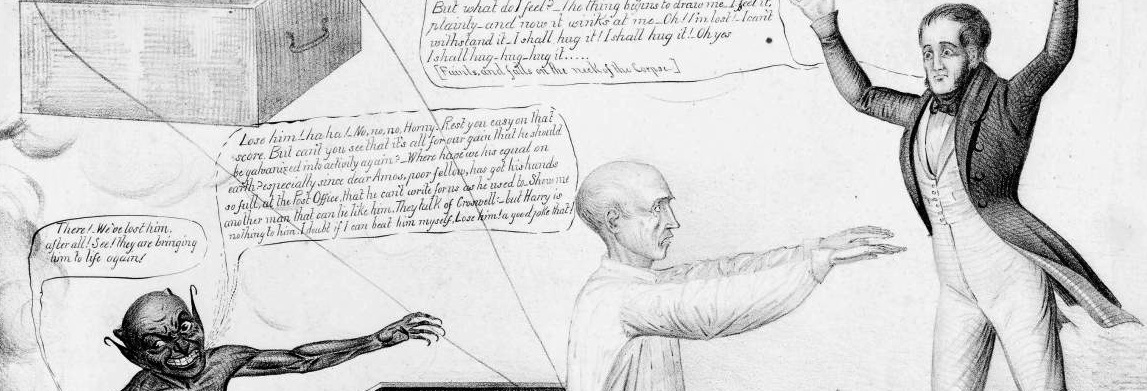 But what do I feel?—The thing begins to draw me—I feel it,
plainly—and now it winks at me—Oh! I'm lost!—I cant
withstand it—I shall hug it! I shall hug it!—Oh yes
I shall hug—hug—hug it.....
[Faints, and falls on the neck of the Corpse.]
Lose him!—ha ha!—No, no, no, Horny. Rest you easy on that
score. But cant you see that it's all for our gain that he should
be galvanized into activity again?—Where have we his equal on
earth? especially since dear Amos, poor fellow, has got his hands
so full, at the Post Office, that he can't write for us as he used to. Show me
another man that can lie like him. They talk of Croswell:—but Harry is
nothing to him. I doubt if I can beat him myself. Lose him! a good joke that!
There! We've lost him,
after all! See! they are bringing
him to life again!